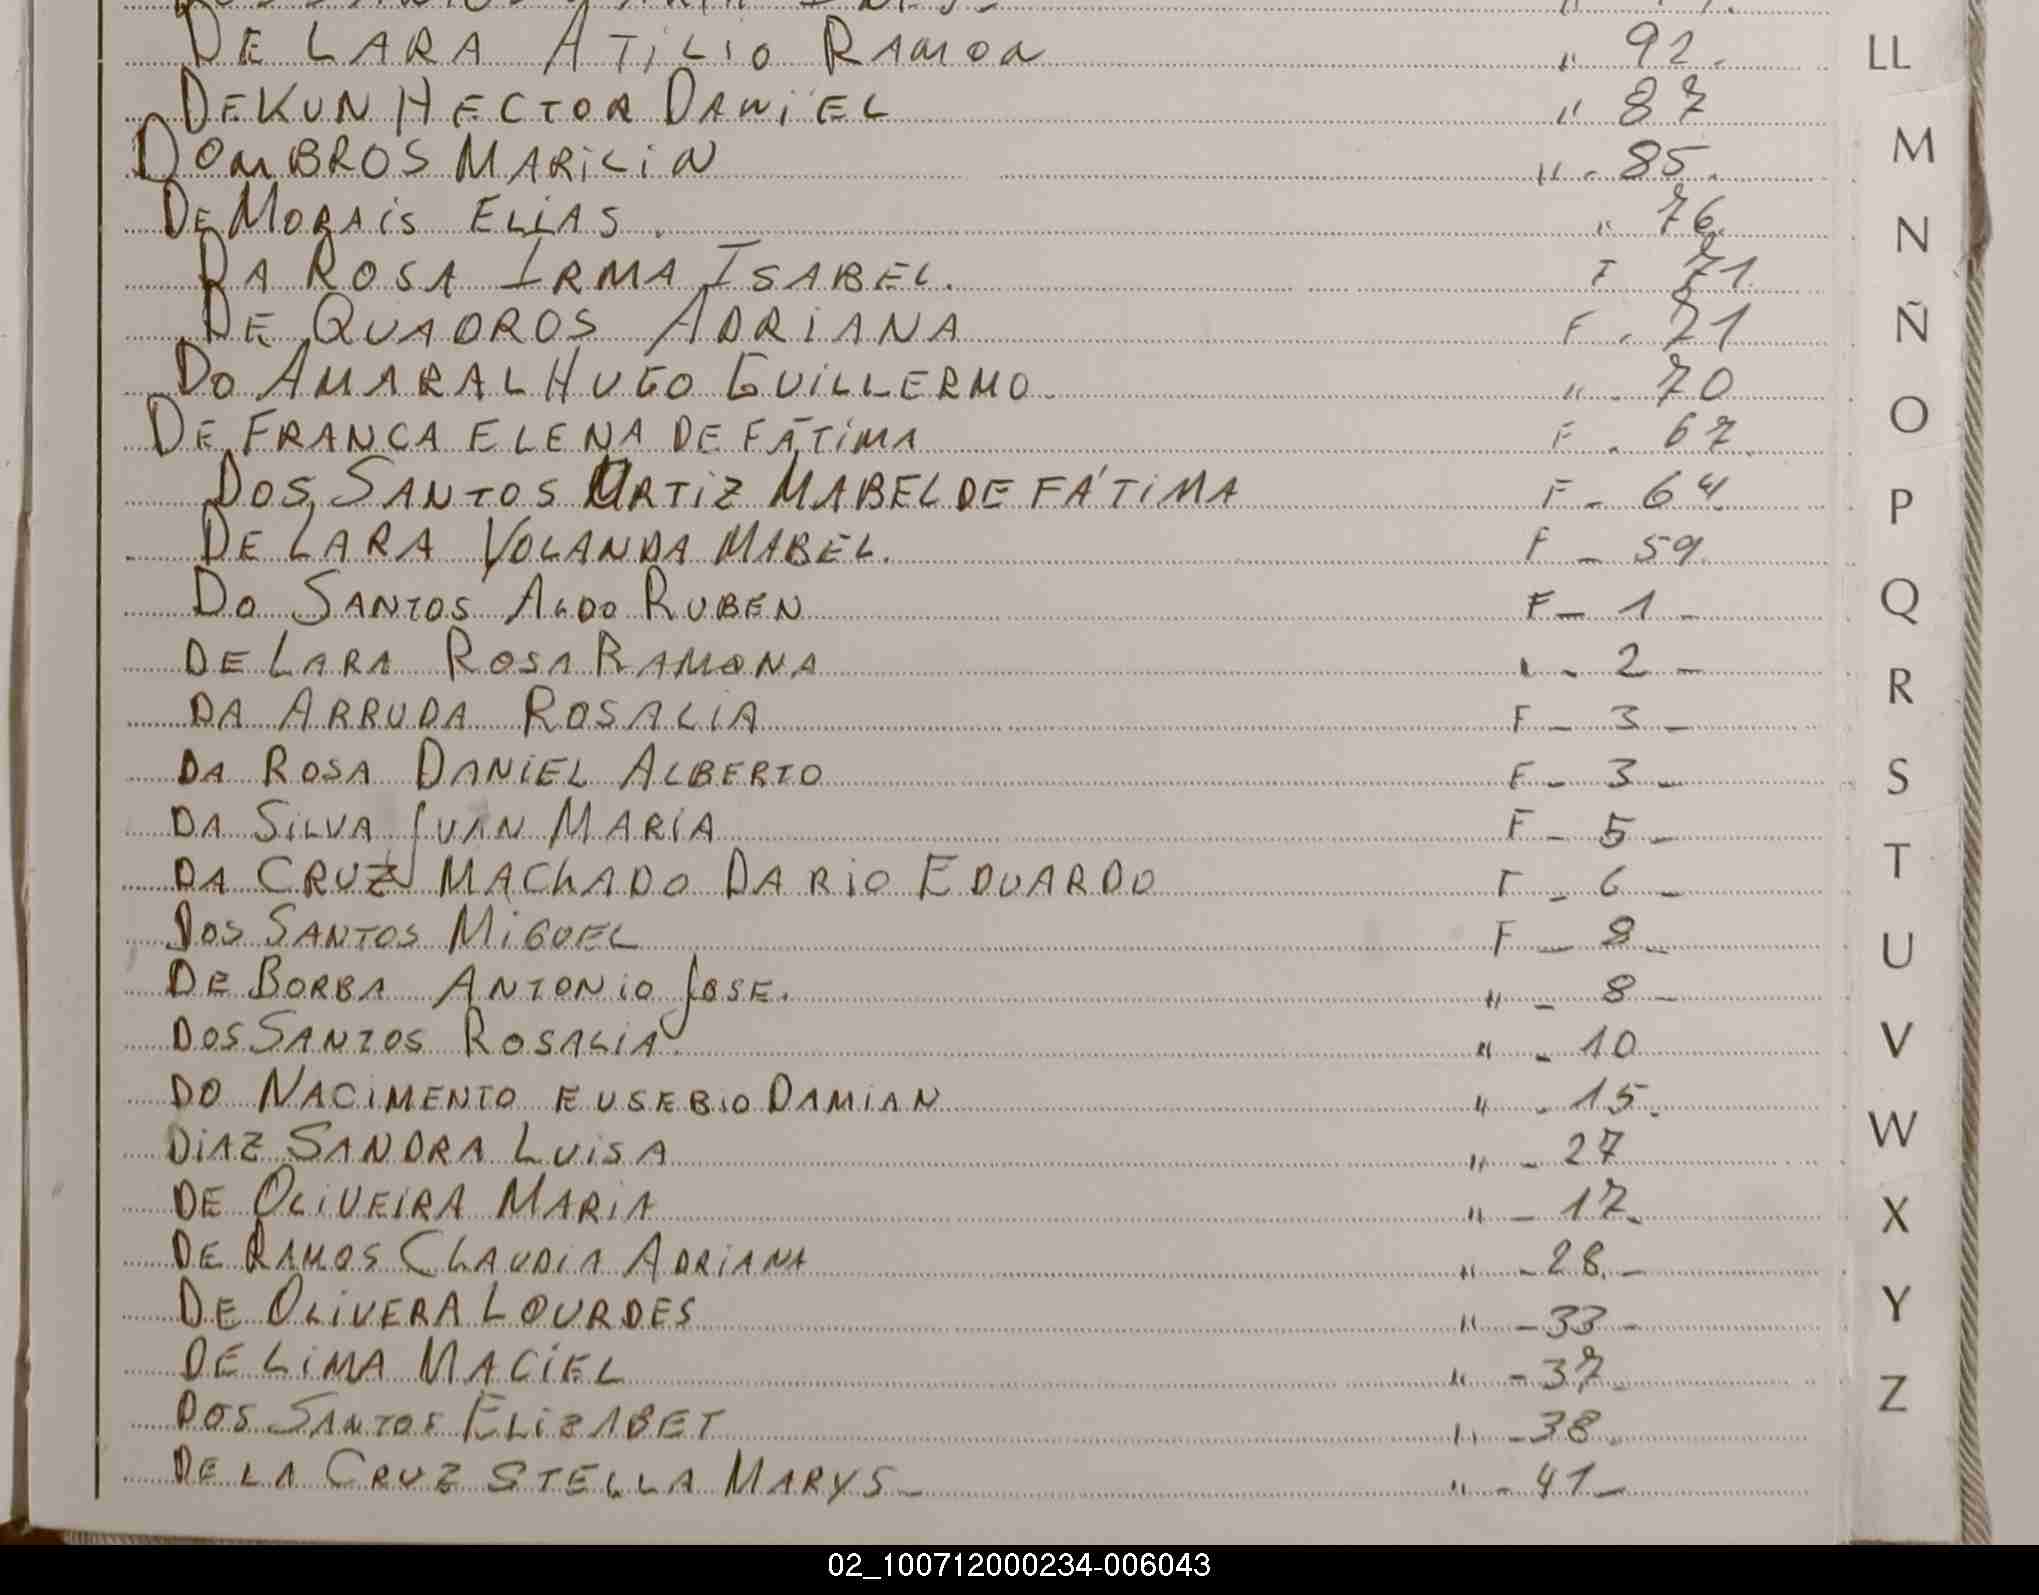 DE LARA ATILIO RAMON " 92.
DEKUN HECTOR DANIEL " 87
DOMBROS MARILIN " - 85.
DE MORAIS ELIAS. " 76.
DA ROSA IRMA ISABEL. F 71.
DE QUADROS ADRIANA F - 71
DO AMARAL HUGO GUILLERMO. " - 70
DE FRANCA ELENA DE FÁTIMA F - 67.
DOS SANTOS ORTIZ MABEL DE FÁTIMA F - 64.
DE LARA YOLANDA MABEL. F - 59.
DO SANTOS ALDO RUBEN F - 1 -
DE LARA ROSA RAMONA " - 2 -
DA ARRUDA ROSALIA F - 3 -
DA ROSA DANIEL ALBERTO F - 3 -
DA SILVA JUAN MARIA F - 5 -
DA CRUZ MACHADO DARIO EDUARDO F - 6 -
DOS SANTOS MIGUEL F - 8 -
DE BORBA ANTONIO JOSE. " - 8 -
DOS SANTOS ROSALIA. " - 10
DO NACIMENTO EUSEBIO DAMIAN " - 15.
DIAZ SANDRA LUISA " - 27
DE OLIVEIRA MARIA " - 17.
DE RAMOS CLAUDIA ADRIANA " - 28. -
DE OLIVERA LOURDES " - 33 -
DE LIMA MACIEL " - 37.
DOS SANTOS ELIZABET " - 38.
DE LA CRUZ STELLA MARYS - " - 41 -
LL
M
N
Ñ
O
P
Q
R
S
T
U
V
W
X
Y
Z
02_100712000234-006043